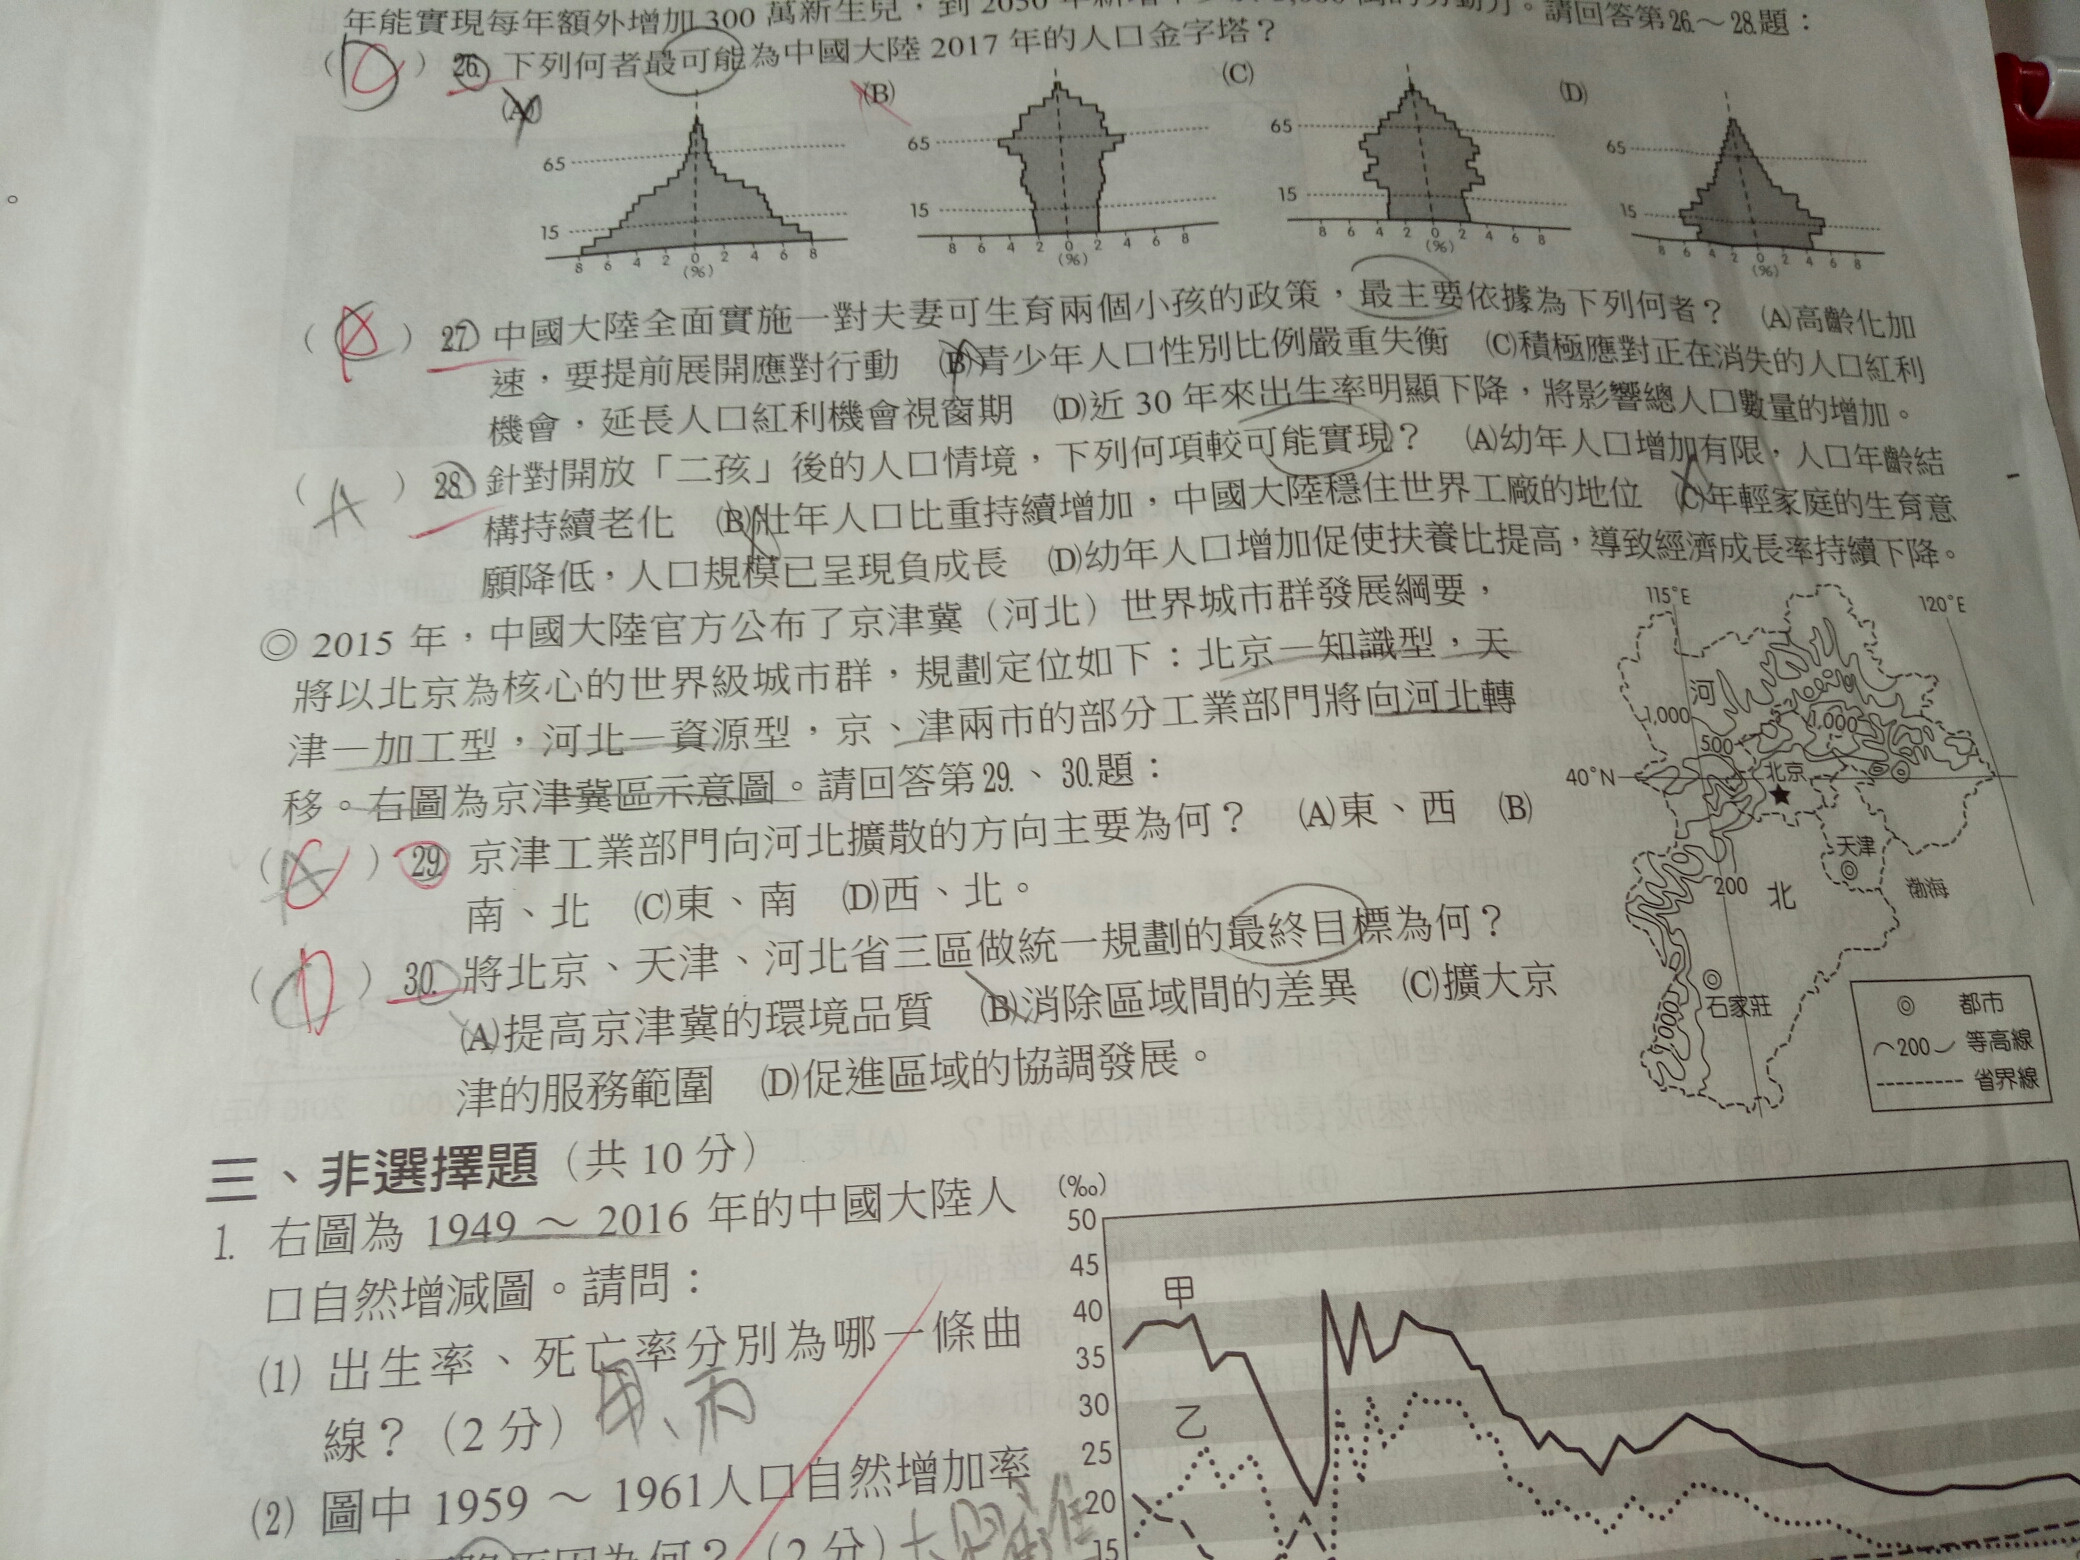 年能實現每年額外增加 300 萬新生兒，到 2050 年新增
請回答第26.～28.題：
( C ) 26. 下列何者最可能為中國大陸 2017 年的人口金字塔？
(A) (B) (C) (D)
65 65 65 65
15 15 15 15
8 6 4 2 0 2 4 6 8 8 6 4 2 0 2 4 6 8 8 6 4 2 0 2 4 6 8 8 6 4 2 0 2 4 6 8
(%) (%) (%) (%)
( ) 27. 中國大陸全面實施一對夫妻可生育兩個小孩的政策，最主要依據為下列何者？ (A)高齡化加
速，要提前展開應對行動 (B)青少年人口性別比例嚴重失衡 (C)積極應對正在消失的人口紅利
機會，延長人口紅利機會視窗期 (D)近 30 年來出生率明顯下降，將影響總人口數量的增加。
( A ) 28. 針對開放「二孩」後的人口情境，下列何項較可能實現？ (A)幼年人口增加有限，人口年齡結
構持續老化 (B)壯年人口比重持續增加，中國大陸穩住世界工廠的地位 (C)年輕家庭的生育意
願降低，人口規模已呈現負成長 (D)幼年人口增加促使扶養比提高，導致經濟成長率持續下降。
◎ 2015 年，中國大陸官方公布了京津冀（河北）世界城市群發展綱要，
將以北京為核心的世界級城市群，規劃定位如下：北京—知識型，天
津—加工型，河北—資源型，京、津兩市的部分工業部門將向河北轉
移。右圖為京津冀區示意圖。請回答第29.、30.題：
( C ) 29. 京津工業部門向河北擴散的方向主要為何？ (A)東、西 (B)
南、北 (C)東、南 (D)西、北。
( D ) 30. 將北京、天津、河北省三區做統一規劃的最終目標為何？
(A)提高京津冀的環境品質 (B)消除區域間的差異 (C)擴大京
津的服務範圍 (D)促進區域的協調發展。
115°E 120°E
河
1,000 1,000
500
40°N 北京
天津
200 北 渤海
石家莊
1,000
◎ 都市
200 等高線
省界線
三、非選擇題（共 10 分）
1. 右圖為 1949 ～ 2016 年的中國大陸人
口自然增減圖。請問：
(1) 出生率、死亡率分別為哪一條曲
線？（2 分）甲、丙
(2) 圖中 1959 ～ 1961人口自然增加率
原因為何？（2 分）
(‰)
50
45
40 甲
35
30
乙
25
20
15